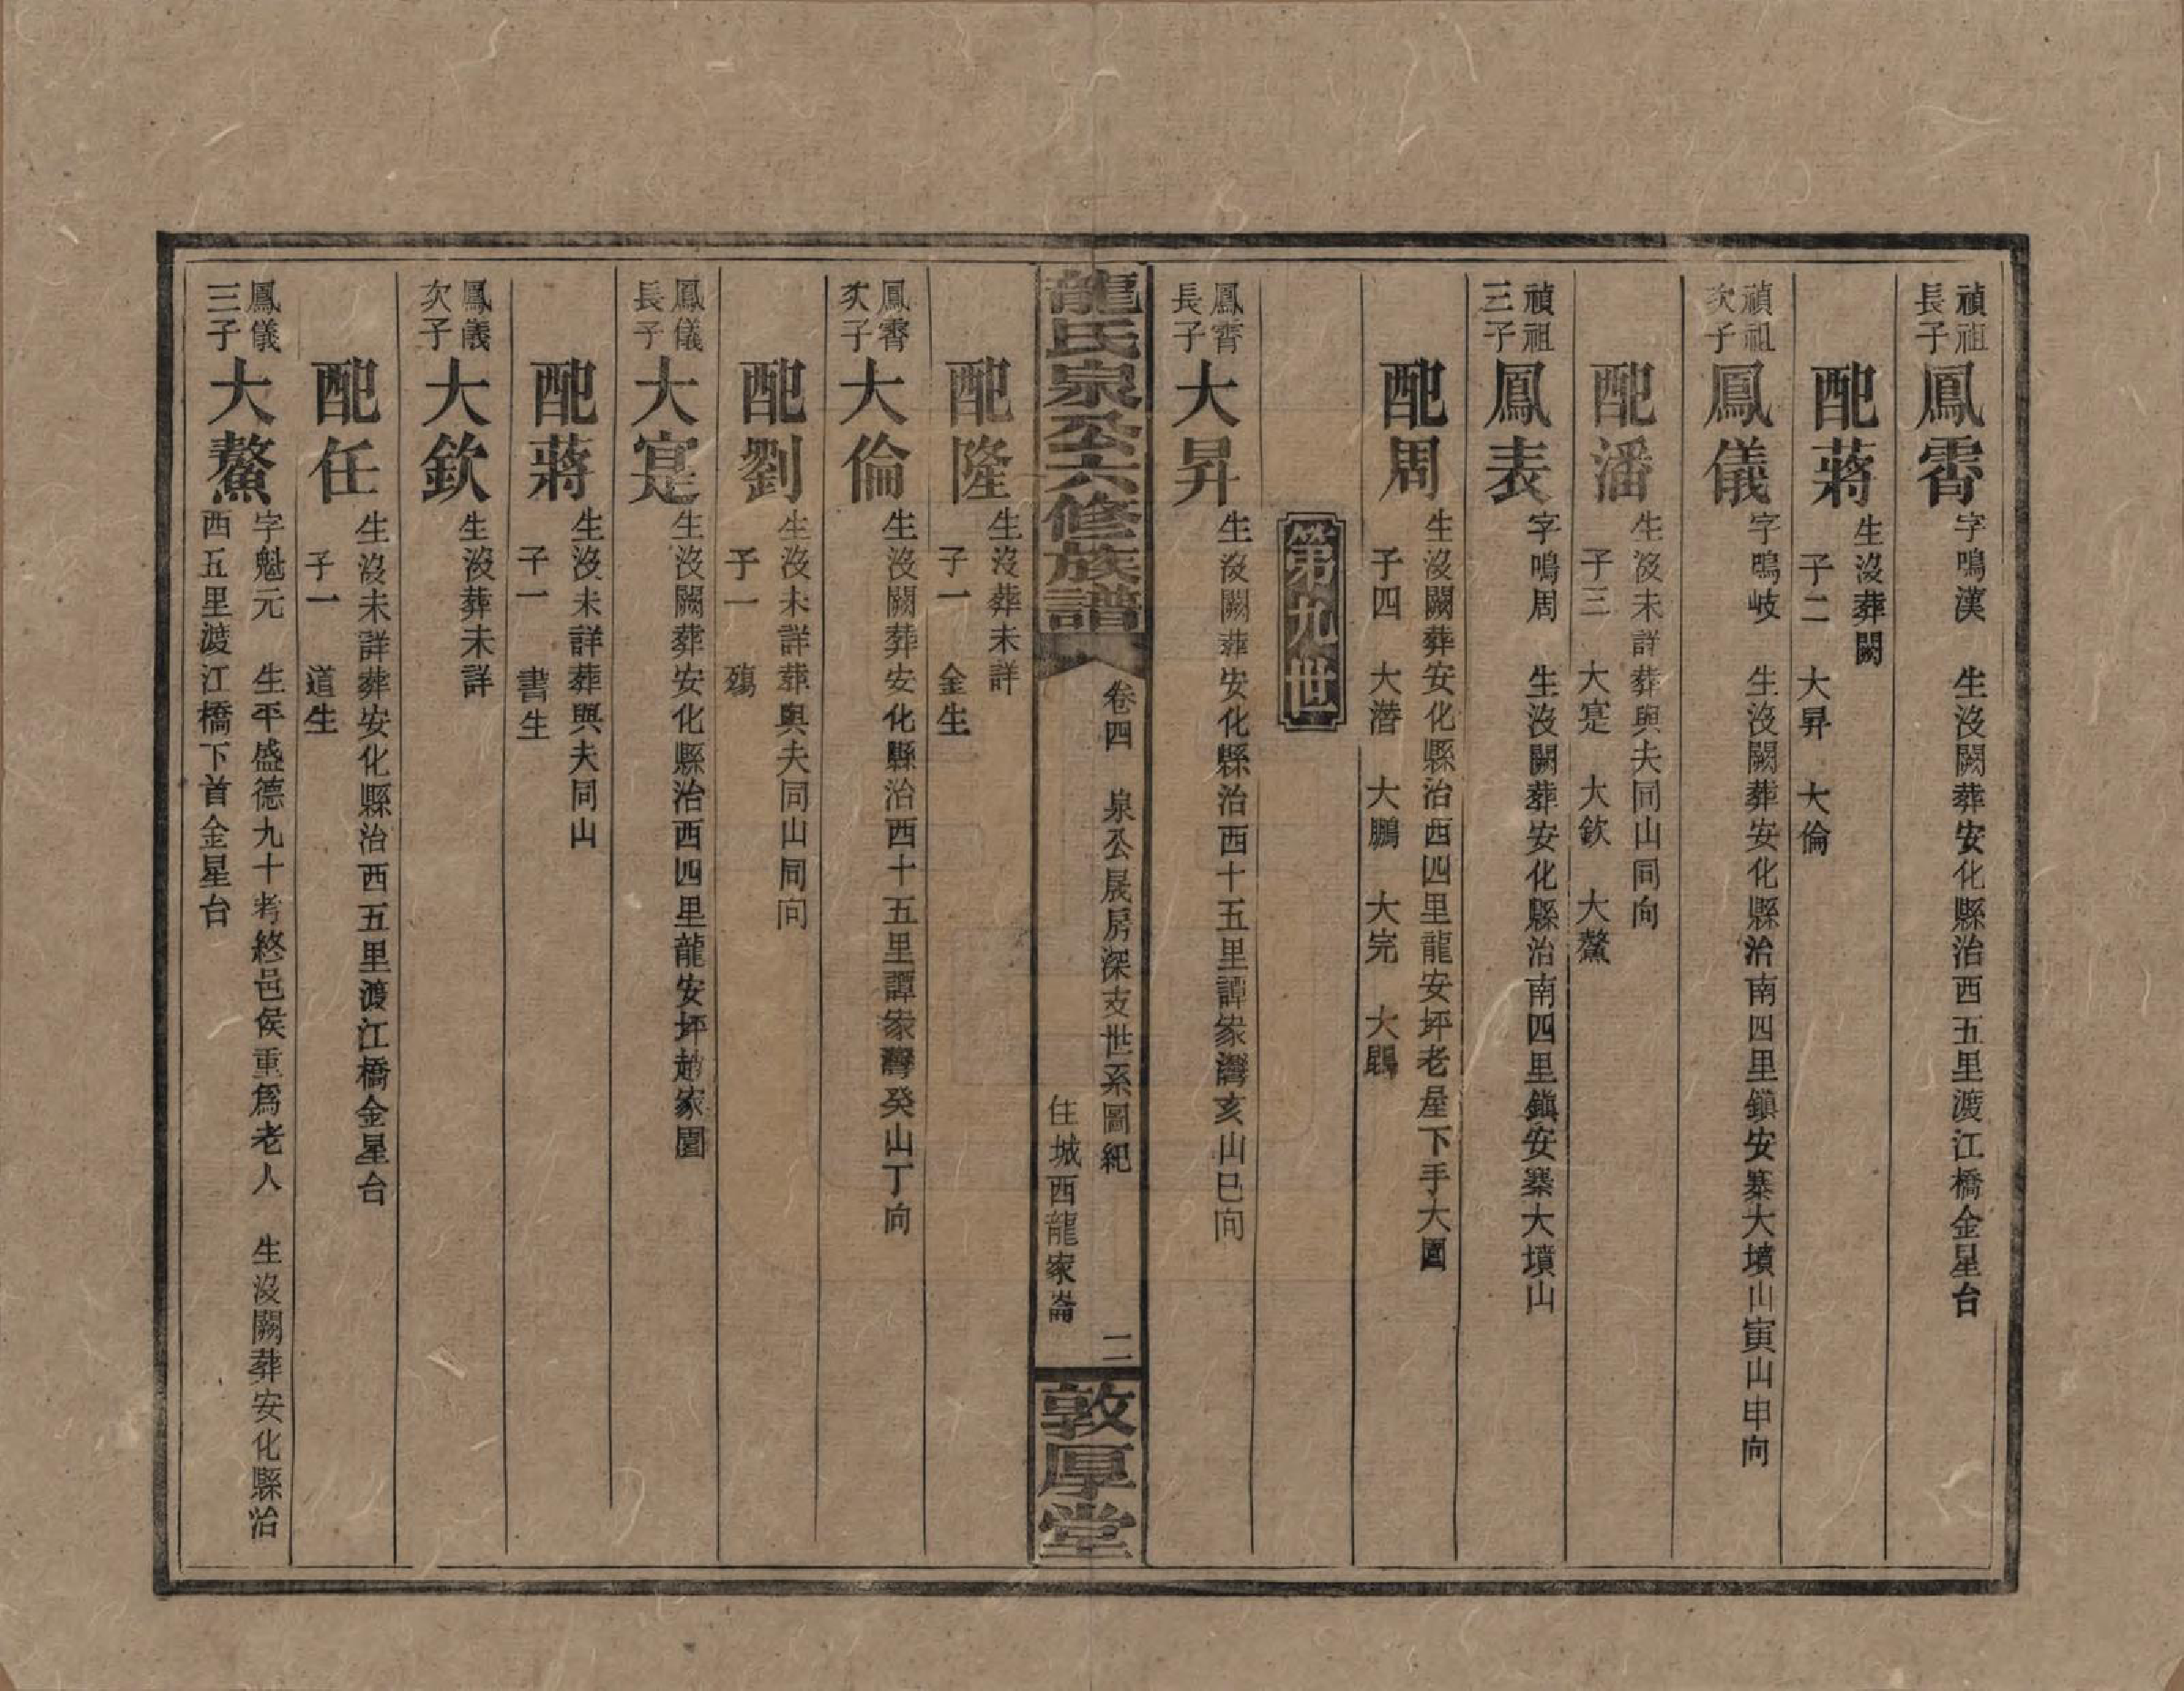 禎祖長子 鳳霄 字鳴漢 生沒闕葬安化縣治西五里渡江橋金星台
配蔣 生沒葬闕
子二 大昇 大倫
禎祖次子 鳳儀 字鳴岐 生沒闕葬安化縣治南四里鎮安寨大墳山寅山申向
配潘 生沒未詳葬與夫同山同向
子三 大寔 大欽 大鰲
禎祖三子 鳳表 字鳴周 生沒闕葬安化縣治南四里鎮安寨大墳山
配周 生沒闕葬安化縣治西四里龍安坪老屋下手大園
子四 大潛 大鵬 大完 大鵾
第九世
鳳霄長子 大昇 生沒闕葬安化縣治西十五里譚家灣亥山巳向
龍氏泉公六修族譜 卷四 泉公晟房深支世系圖紀 二
住城西龍家崙
敦厚堂
配隆 生沒葬未詳
子一 金生
鳳霄次子 大倫 生沒闕葬安化縣治西十五里譚家灣癸山丁向
配劉 生沒未詳葬與夫同山同向
子一 殤
鳳儀長子 大寔 生沒闕葬安化縣治西四里龍安坪趙家園
配蔣 生沒未詳葬與夫同山
子一 書生
鳳儀次子 大欽 生沒葬未詳
配任 生沒未詳葬安化縣治西五里渡江橋金星台
子一 道生
鳳儀三子 大鰲 字魁元 生平盛德九十考終邑侯重為老人 生沒闕葬安化縣治
西五里渡江橋下首金星台